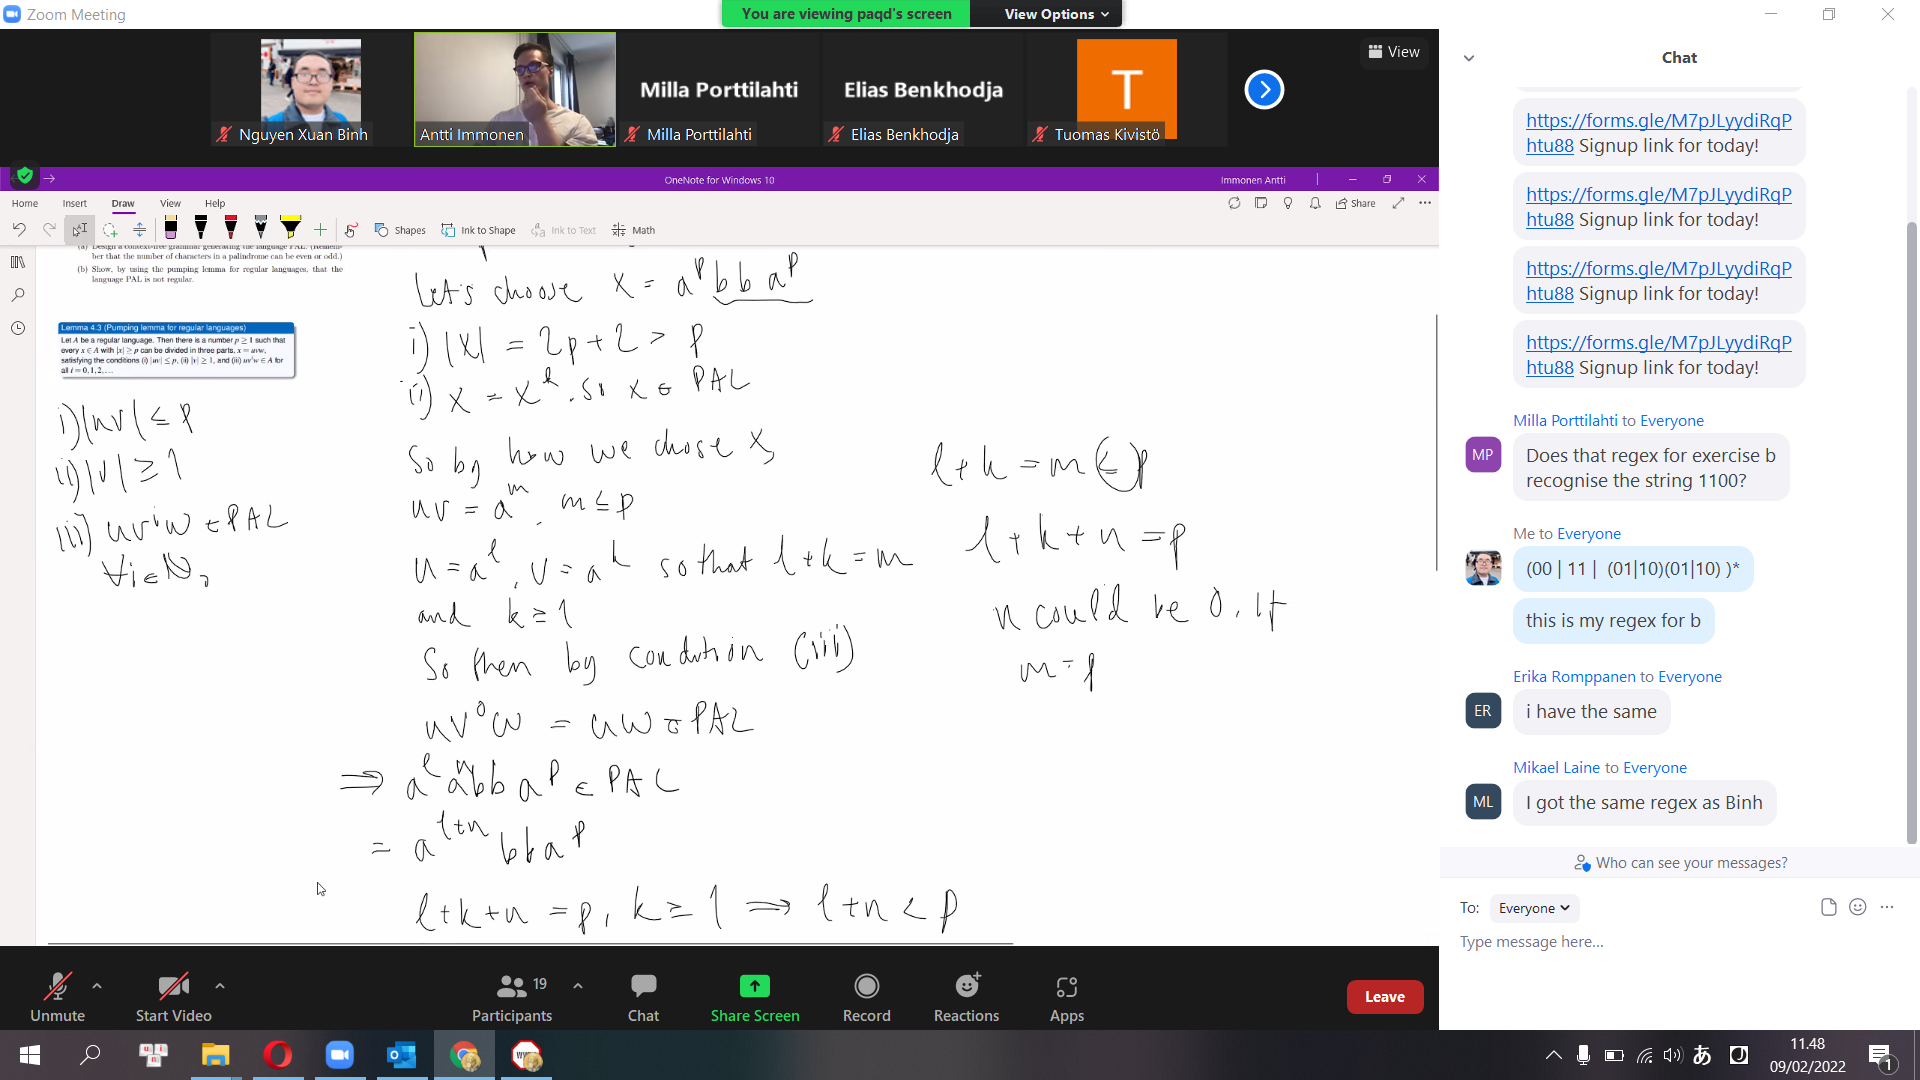 Zoom Meeting
You are viewing paqd's screen
View Options
View
Nguyen Xuan Binh
Antti Immonen
Milla Porttilahti
Milla Porttilahti
Elias Benkhodja
Elias Benkhodja
T
Tuomas Kivistö
OneNote for Windows 10
Immonen Antti
Home Insert Draw View Help
Share
Shapes
Ink to Shape
Ink to Text
Math
(a) Design a context-free grammar generating the language PAL. (Remember that the number of characters in a palindrome can be even or odd.)
(b) Show, by using the pumping lemma for regular languages, that the
language PAL is not regular.
Lemma 4.3 (Pumping lemma for regular languages)
Let A be a regular language. Then there is a number p ≥ 1 such that
every x ∈ A with |x| ≥ p can be divided in three parts, x = uvw,
satisfying the conditions (i) |uv| ≤ p, (ii) |v| ≥ 1, and (iii) uvⁱw ∈ A for
all i = 0,1,2,...
i) |uv| ≤ p
ii) |v| ≥ 1
iii) uvⁱw ∈ PAL
∀i∈ℕ,
Let's choose x = aᵖ b b aᵖ
i) |x| = 2p+2 > p
ii) x = xᴿ, so x ∈ PAL
So by how we chose x,
uv = aᵐ, m ≤ p
u = aˡ, v = aᵏ so that l+k = m
and k ≥ 1
So then by condition (iii)
uv⁰w = uw ∈ PAL
⇒ aˡ aⁿbb aᵖ ∈ PAL
= aˡ⁺ⁿ bbaᵖ
l+k+n = p, k ≥ 1 ⇒ l+n < p
l+k = m ≤ p
l+k+n = p
n could be 0, if
m = p
Chat
https://forms.gle/M7pJLyydiRqP
htu88 Signup link for today!
https://forms.gle/M7pJLyydiRqP
htu88 Signup link for today!
https://forms.gle/M7pJLyydiRqP
htu88 Signup link for today!
https://forms.gle/M7pJLyydiRqP
htu88 Signup link for today!
Milla Porttilahti to Everyone
MP
Does that regex for exercise b
recognise the string 1100?
Me to Everyone
(00 | 11 | (01|10)(01|10) )*
this is my regex for b
Erika Romppanen to Everyone
ER
i have the same
Mikael Laine to Everyone
ML
I got the same regex as Binh
Who can see your messages?
To: Everyone
Type message here...
Unmute
Start Video
19
Participants
Chat
Share Screen
Record
Reactions
Apps
Leave
あ
J
11.48
09/02/2022
1